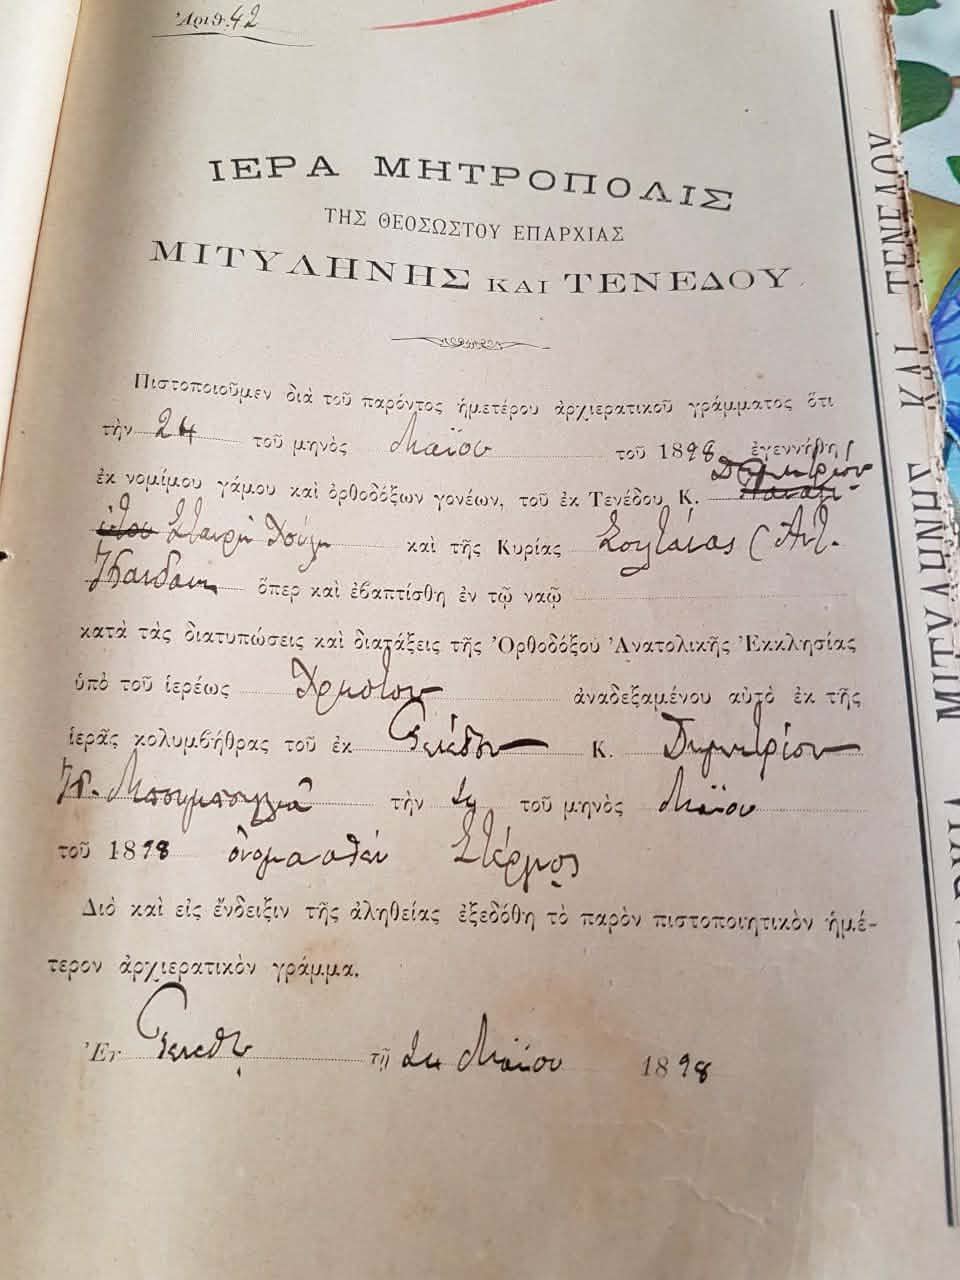 Ἀριθ. 42
ΙΕΡΑ ΜΗΤΡΟΠΟΛΙΣ
ΤΗΣ ΘΕΟΣΩΣΤΟΥ ΕΠΑΡΧΙΑΣ
ΜΙΤΥΛΗΝΗΣ ΚΑΙ ΤΕΝΕΔΟΥ
Πιστοποιοῦμεν διὰ τοῦ παρόντος ἡμετέρου ἀρχιερατικοῦ γράμματος ὅτι
τὴν 24 τοῦ μηνὸς Μαΐου τοῦ 1898 ἐγεννήθη
Δημητρίου
ἐκ νομίμου γάμου καὶ ὀρθοδόξων γονέων, τοῦ ἐκ Τενέδου Κ.
καὶ τῆς Κυρίας Σουλτάνας (Ἀντ.
ὅπερ καὶ ἐβαπτίσθη ἐν τῷ ναῷ
κατὰ τὰς διατυπώσεις καὶ διατάξεις τῆς Ὀρθοδόξου Ἀνατολικῆς Ἐκκλησίας
ὑπὸ τοῦ ἱερέως Χρήστου ἀναδεξαμένου αὐτὸ ἐκ τῆς
ἱερᾶς κολυμβήθρας τοῦ ἐκ Τενέδου Κ. Δημητρίου
τὴν 24 τοῦ μηνὸς Μαΐου
τοῦ 1898 ὀνομασθὲν Στέργιος
Διὸ καὶ εἰς ἔνδειξιν τῆς ἀληθείας ἐξεδόθη τὸ παρὸν πιστοποιητικὸν ἡμέ-
τερον ἀρχιερατικὸν γράμμα.
Ἐν Τενέδῳ τῇ 24 Μαΐου 1898
ΜΙΤΥΛΗΝΗΣ ΚΑΙ ΤΕΝΕΔΟΥ